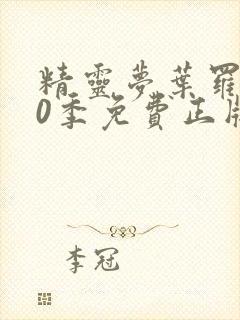 精靈夢葉羅
0季免費正版
李冠